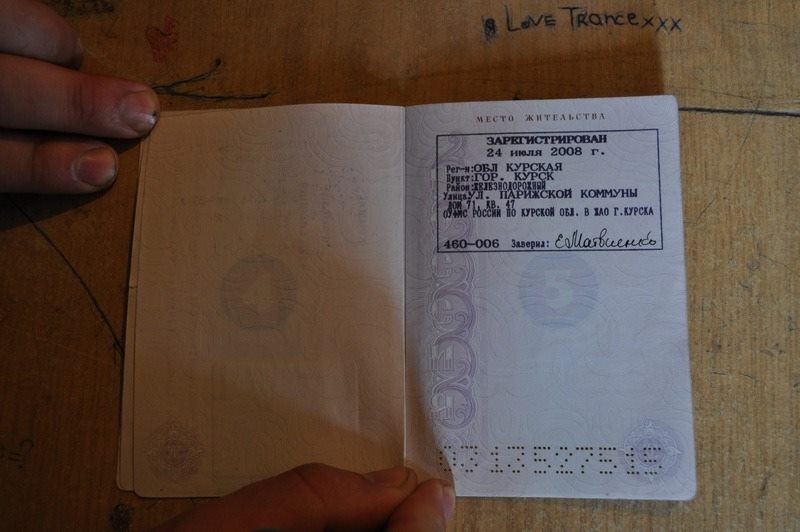 I LOVE TRANCE xxx
МЕСТО ЖИТЕЛЬСТВА
ЗАРЕГИСТРИРОВАН
24 июля 2008 г.
Рег-н: ОБЛ КУРСКАЯ
Пункт: ГОР. КУРСК
Район: ЖЕЛЕЗНОДОРОЖНЫЙ
Улица: УЛ. ПАРИЖСКОЙ КОММУНЫ
ДОМ 71, КВ. 47
ОУФМС РОССИИ ПО КУРСКОЙ ОБЛ. В ЖАО Г.КУРСКА
460-006 Заверил: Е.Матвиенко
4
5